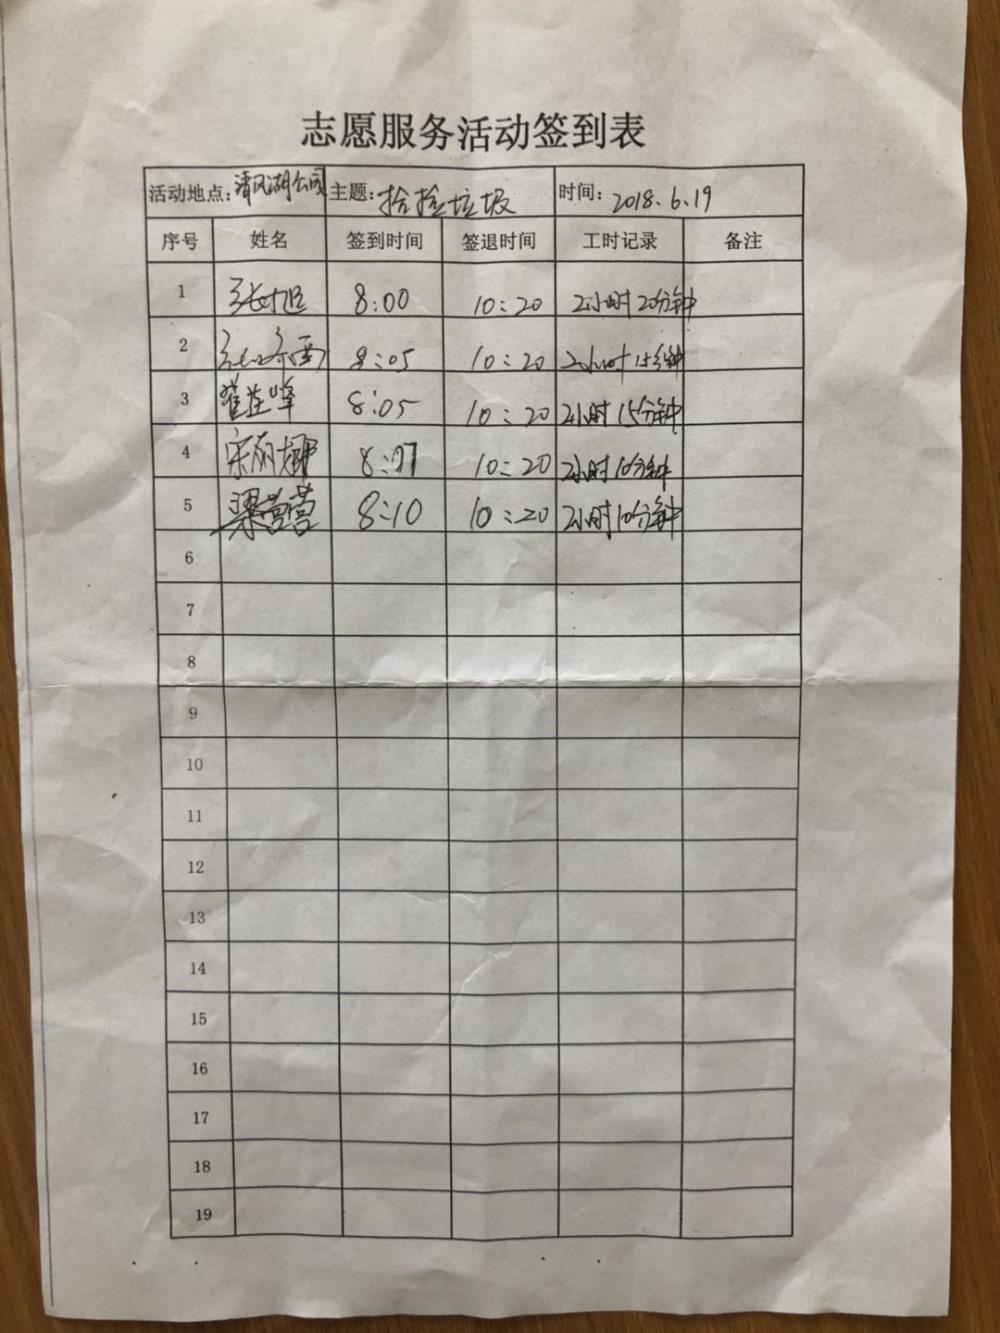 志愿服务活动签到表
活动地点：清风湖公园 主题：捡捡垃圾 时间：2018.6.19
序号 姓名 签到时间 签退时间 工时记录 备注
1 张旭 8:00 10:20 2小时20分钟
2 8:05 10:20 2小时15分钟
3 8:05 10:20 2小时15分钟
4 宋丽娜 8:07 10:20 2小时10分钟
5 梁营营 8:10 10:20 2小时10分钟
6
7
8
9
10
11
12
13
14
15
16
17
18
19